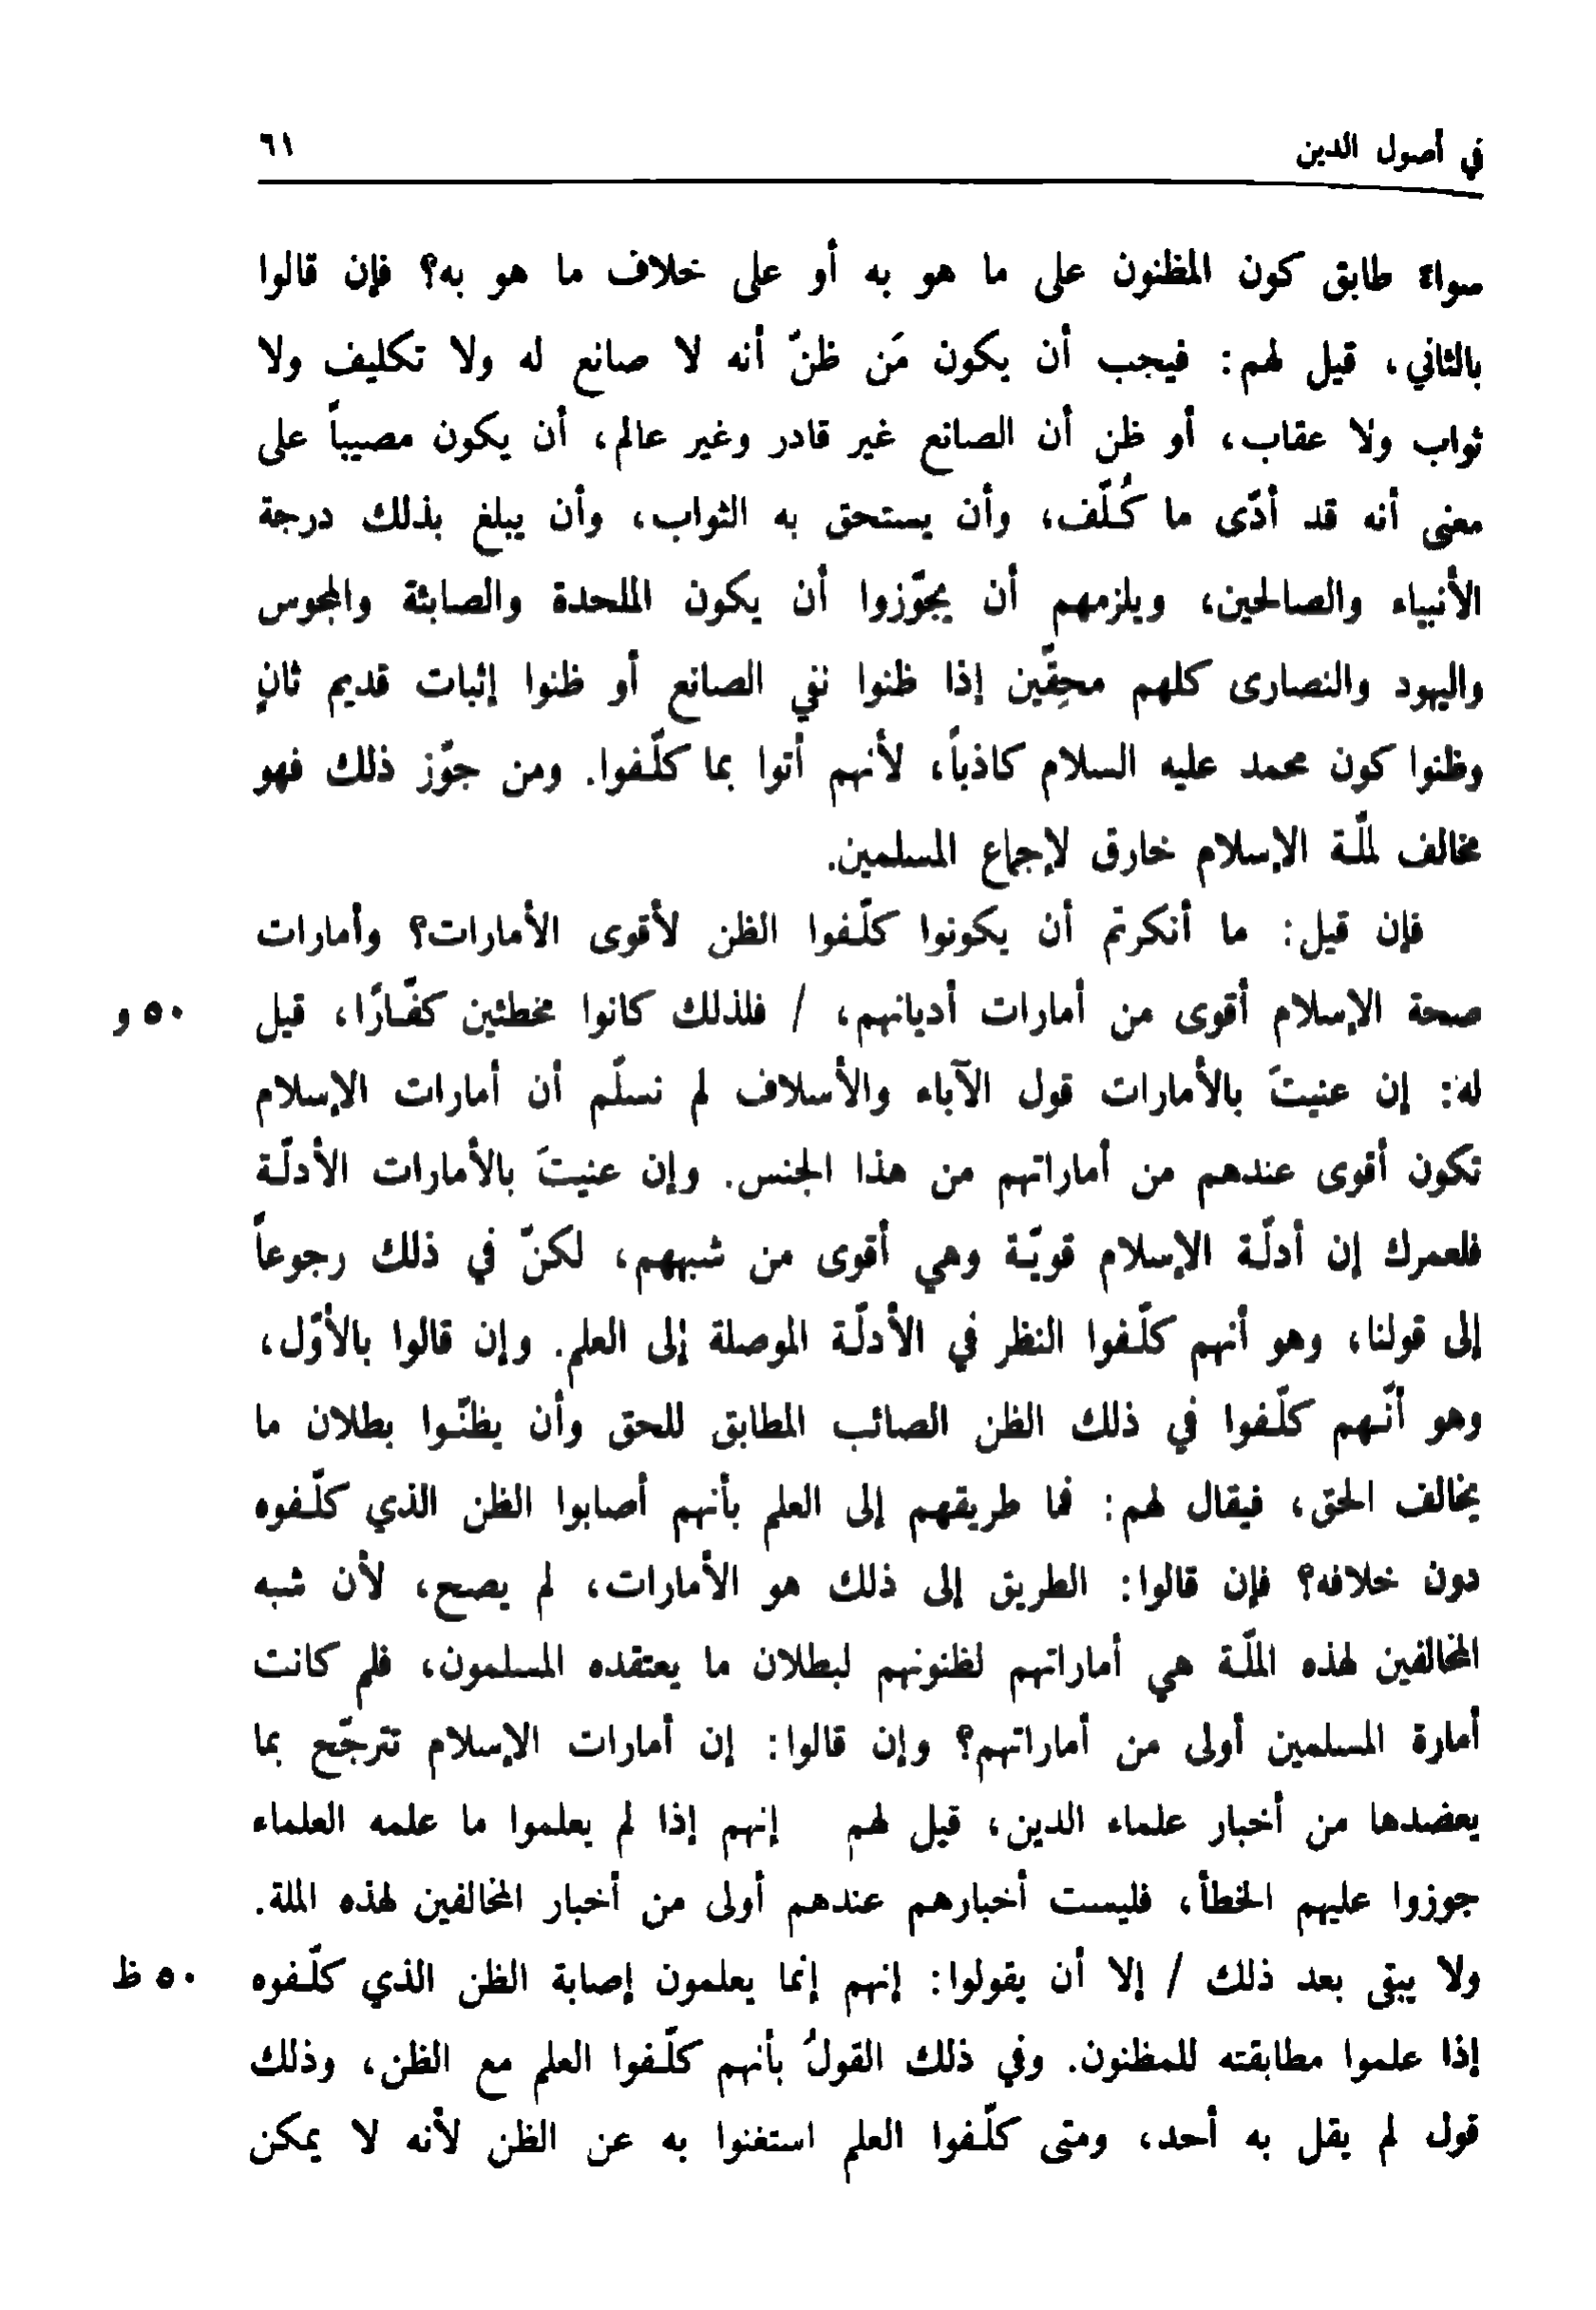 في أصول الدين ٦١
سواء طابق كون المظنون على ما هو به أو على خلاف ما هو به؟ فإن قالوا
بالثاني، قيل لهم: فيجب أن يكون مَن ظنّ أنه لا صانع له ولا تكليف ولا
ثواب ولا عقاب، أو ظن أن الصانع غير قادر وغير عالم، أن يكون مصيباً على
معنى أنه قد أدّى ما كُلّف، وأن يستحق به الثواب، وأن يبلغ بذلك درجة
الأنبياء والصالحين، ويلزمهم أن يجوّزوا أن يكون الملحدة والصابئة والمجوس
واليهود والنصارى كلهم محقِّين إذا ظنوا نفي الصانع أو ظنوا إثبات قديم ثانٍ
وظنوا كون محمد عليه السلام كاذباً، لأنهم أتوا بما كلّفوا. ومن جوّز ذلك فهو
مخالف لملّة الإسلام خارق لإجماع المسلمين.
فإن قيل: ما أنكرتم أن يكونوا كلّفوا الظن لأقوى الأمارات؟ وأمارات
صحة الإسلام أقوى من أمارات أديانهم، / فلذلك كانوا مخطئين كفّارًا، قيل ٥٠ و
له: إن عنيتَ بالأمارات قول الآباء والأسلاف لم نسلّم أن أمارات الإسلام
تكون أقوى عندهم من أماراتهم من هذا الجنس. وإن عنيتَ بالأمارات الأدلّة
فلعمرك إن أدلّة الإسلام قويّة وهي أقوى من شبههم، لكنّ في ذلك رجوعاً
إلى قولنا، وهو أنهم كلّفوا النظر في الأدلّة الموصلة إلى العلم. وإن قالوا بالأوّل،
وهو أنّهم كلّفوا في ذلك الظن الصائب المطابق للحق وأن يظنّوا بطلان ما
يخالف الحق، فيقال لهم: فما طريقهم إلى العلم بأنهم أصابوا الظن الذي كلّفوه
دون خلافه؟ فإن قالوا: الطريق إلى ذلك هو الأمارات، لم يصح، لأن شبه
المخالفين لهذه الملّة هي أماراتهم لظنونهم لبطلان ما يعتقده المسلمون، فلم كانت
أمارة المسلمين أولى من أماراتهم؟ وإن قالوا: إن أمارات الإسلام تترجّح بما
يعضدها من أخبار علماء الدين، قيل لهم إنهم إذا لم يعلموا ما علمه العلماء
جوزوا عليهم الخطأ، فليست أخبارهم عندهم أولى من أخبار المخالفين لهذه الملة.
ولا يبقى بعد ذلك / إلا أن يقولوا: إنهم إنما يعلمون إصابة الظن الذي كلّفوه ٥٠ ظ
إذا علموا مطابقته للمظنون. وفي ذلك القولُ بأنهم كلّفوا العلم مع الظن، وذلك
قول لم يقل به أحد، ومتى كلّفوا العلم استغنوا به عن الظن لأنه لا يمكن